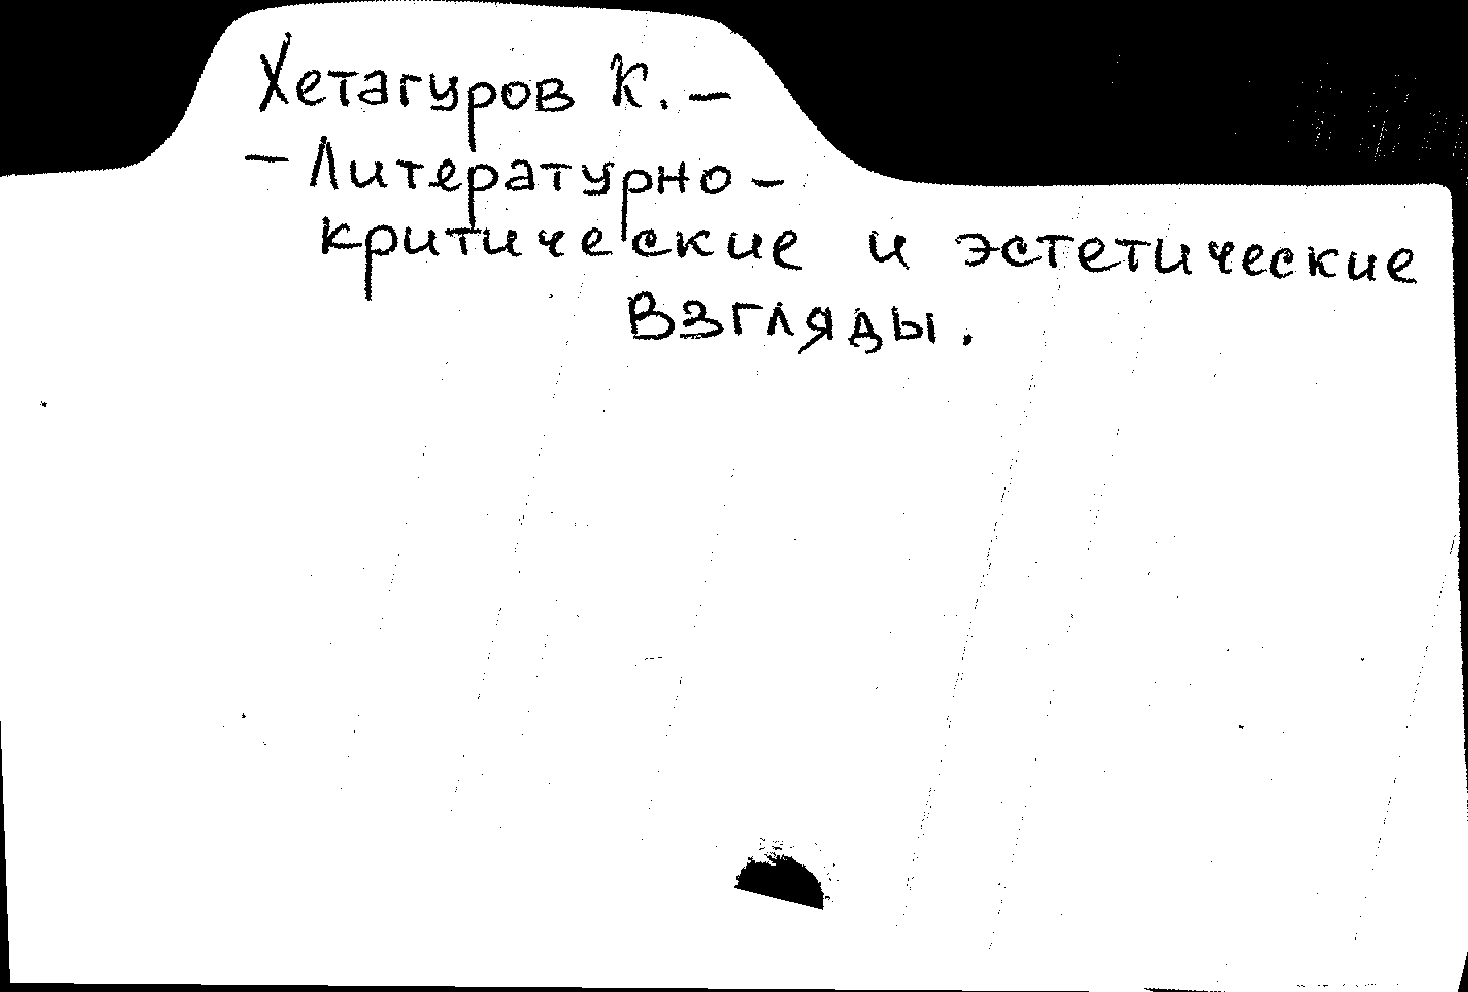 Хетагуров К. –
– Литературно –
критические и эстетические
взгляды.